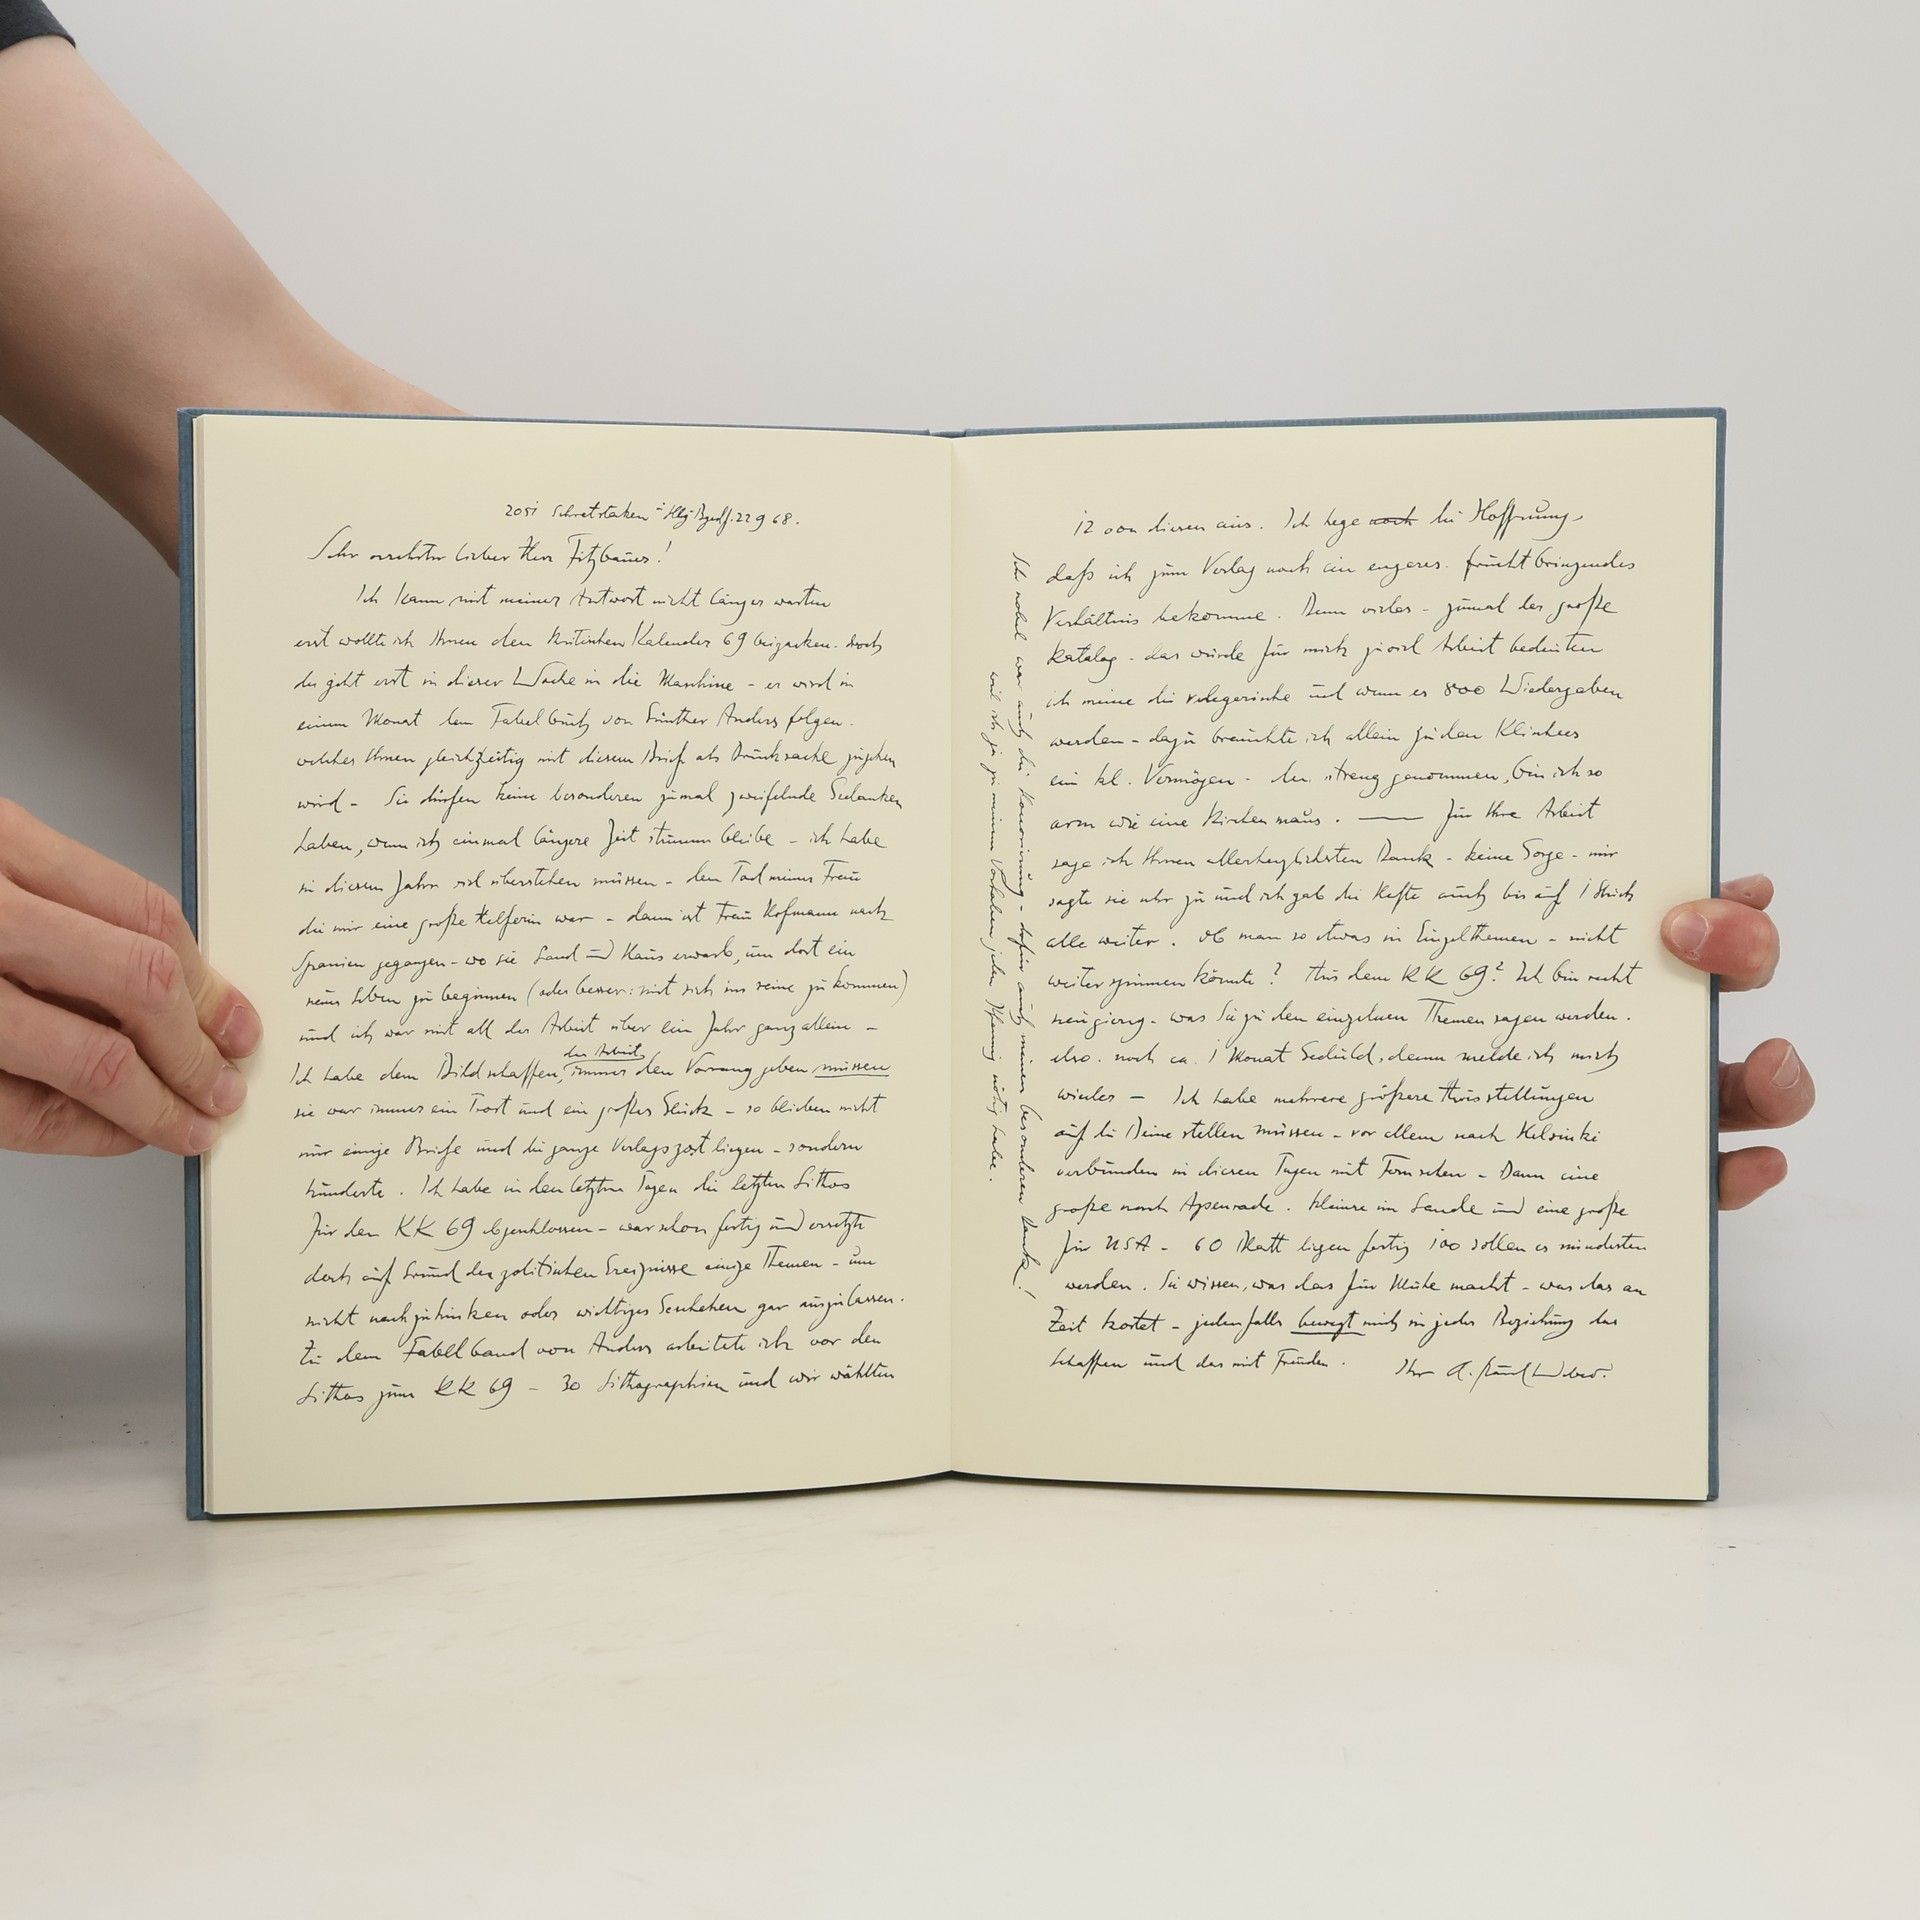 2051 Schretstaken 22 9 68.
Sehr verehrter lieber Herr Fitzbauer!
Ich kann mit meiner Antwort nicht länger warten
erst wollte ich Ihnen den Kritischen Kalender 69 beipacken. doch
der geht erst in dieser Woche in die Maschine – er wird in
einem Monat dem Fabelbuch von Günther Anders folgen.
welches Ihnen gleichzeitig mit diesem Brief als Drucksache zugehen
wird – Sie dürfen keine besonderen zumal zweifelnde Gedanken
haben, wenn ich einmal längere Zeit stumm bleibe – ich habe
in diesem Jahr viel überstehen müssen – den Tod meiner Frau
die mir eine große Helferin war – dann ist Frau Hofmann nach
Spanien gegangen – wo sie Land und Haus erwarb, um dort ein
neues Leben zu beginnen (oder besser: mit sich ins reine zu kommen)
und ich war mit all der Arbeit über ein Jahr ganz allein –
Ich habe dem Bildschaffen, der Arbeit, immer den Vorrang geben müssen
sie war immer ein Trost und ein großes Glück – so blieben nicht
nur einige Briefe und die ganze Verlagspost liegen – sondern
hunderte. Ich habe in den letzten Tagen die letzten Lithos
für den KK 69 abgeschlossen – war schon fertig und ersetzte
doch auf Grund der politischen Ereignisse einige Themen – um
nicht nachzuhinken oder wichtiges Geschehen gar auszulassen.
Zu dem Fabelband von Anders arbeitete ich vor den
Lithos zum KK 69 – 30 Lithographien und wir wählten
12 von diesen aus. Ich hege noch die Hoffnung,
daß ich zum Verlag noch ein engeres. fruchtbringendes
Verhältnis bekomme. Denn vieles – zumal der große
Katalog – das würde für mich zuviel Arbeit bedeuten
ich meine die verlegerische und wenn es 800 Wiedergaben
werden – dazu brauchte ich allein zu den Klischees
ein kl. Vermögen – streng genommen, bin ich so
arm wie eine Kirchenmaus. — Für Ihre Arbeit
sage ich Ihnen allerherzlichsten Dank – keine Sorge – mir
sagte sie sehr zu und ich gab die Hefte auch bis auf 1 Stück
alle weiter. Ob man so etwas in Einzelthemen – nicht
weiterspinnen könnte? Aus dem KK 69? Ich bin recht
neugierig – was Sie zu den einzelnen Themen sagen werden.
also. noch ca. 1 Monat Geduld, dann melde ich mich
wieder – Ich habe mehrere größere Ausstellungen
auf die Beine stellen müssen – vor allem nach Helsinki
verbunden in diesen Tagen mit Fernsehen – Dann eine
große nach Apenrade. Kleinere im Lande und eine große
für USA – 60 Blatt liegen fertig 100 sollen es mindesten
werden. Sie wissen, was das für Mühe macht – was das an
Zeit kostet – jedenfalls bewegt mich in jeder Beziehung das
Schaffen und das mit Freuden. Ihr A. Paul Weber.
Sehr nobel war auch die Honorierung – dafür auch meinen besonderen Dank!
weil ich ja zu meinem Vorhaben jeden Pfennig nötig habe.